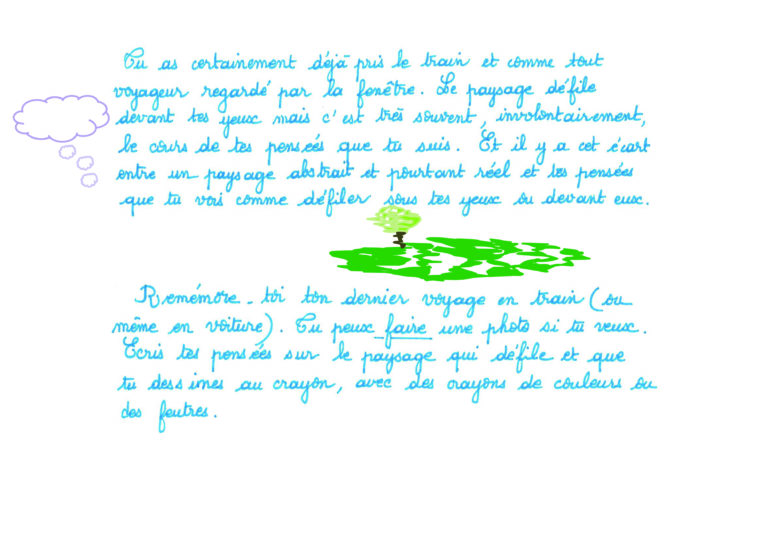 Tu as certainement déjà pris le train et comme tout
voyageur regardé par la fenêtre. Le paysage défile
devant tes yeux mais c'est très souvent, involontairement,
le cours de tes pensées que tu suis. Et il y a cet écart
entre un paysage abstrait et pourtant réel et tes pensées
que tu vois comme défiler sous tes yeux ou devant eux.
Remémore-toi ton dernier voyage en train (ou
même en voiture). Tu peux faire une photo si tu veux.
Ecris tes pensées sur le paysage qui défile et que
tu dessines au crayon, avec des crayons de couleurs ou
des feutres.